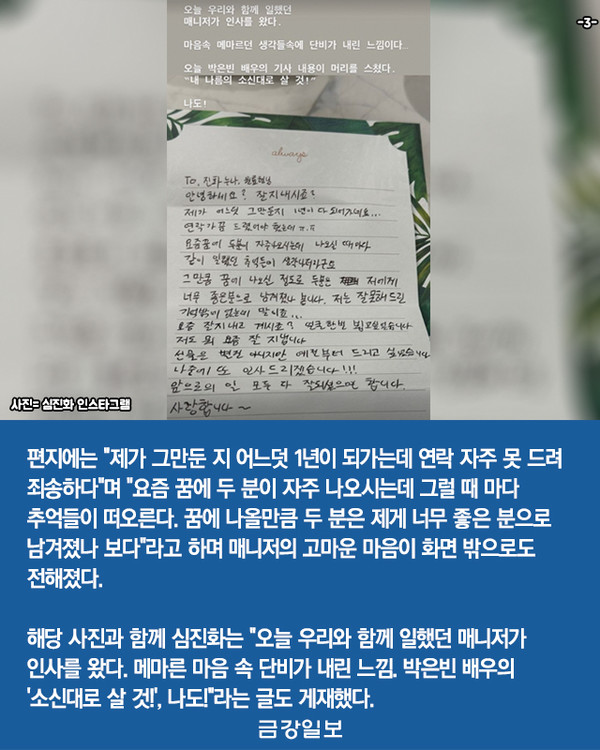 오늘 우리와 함께 일했던
매니저가 인사를 왔다.
마음속 메마르던 생각들속에 단비가 내린 느낌이다..
오늘 박은빈 배우의 기사 내용이 머리를 스쳤다.
"내 나름의 소신대로 살 것!"
나도!
-3-
always
To. 진화누나, 원효형님
안녕하세요? 잘지내시죠?
제가 어느덧 그만둔지 1년이 다 되어가네요...
연락가끔 드렸어야 했는데 ㅠ.ㅠ
요즘꿈에 두분이 자주나오시는데 나오신 때마다
같이 일했던 추억들이 생각나더라구요
그만큼 꿈에 나오신 정도로 두분은 저에게
너무 좋은분으로 남겨졌나 봅니다. 저는 잘못해드린
기억밖이 없는데 말이죠...
요즘 잘지내고 계시죠? 연락한번 보고싶었습니다
저도 뭐 요즘 잘 지냅니다
선물은 별건 아니지만 예전부터 드리고 싶었습니다
나중에 또 인사드리겠습니다!!!
앞으로의 일 모두 다 잘되셨으면 합니다.
사랑합니다~
사진= 심진화 인스타그램
편지에는 "제가 그만둔 지 어느덧 1년이 되가는데 연락 자주 못 드려
죄송하다"며 "요즘 꿈에 두 분이 자주 나오시는데 그럴 때 마다
추억들이 떠오른다. 꿈에 나올만큼 두 분은 제게 너무 좋은 분으로
남겨졌나 보다"라고 하며 매니저의 고마운 마음이 화면 밖으로도
전해졌다.
해당 사진과 함께 심진화는 "오늘 우리와 함께 일했던 매니저가
인사를 왔다. 메마른 마음 속 단비가 내린 느낌. 박은빈 배우의
'소신대로 살 것!', 나도!"라는 글도 게재했다.
금강일보